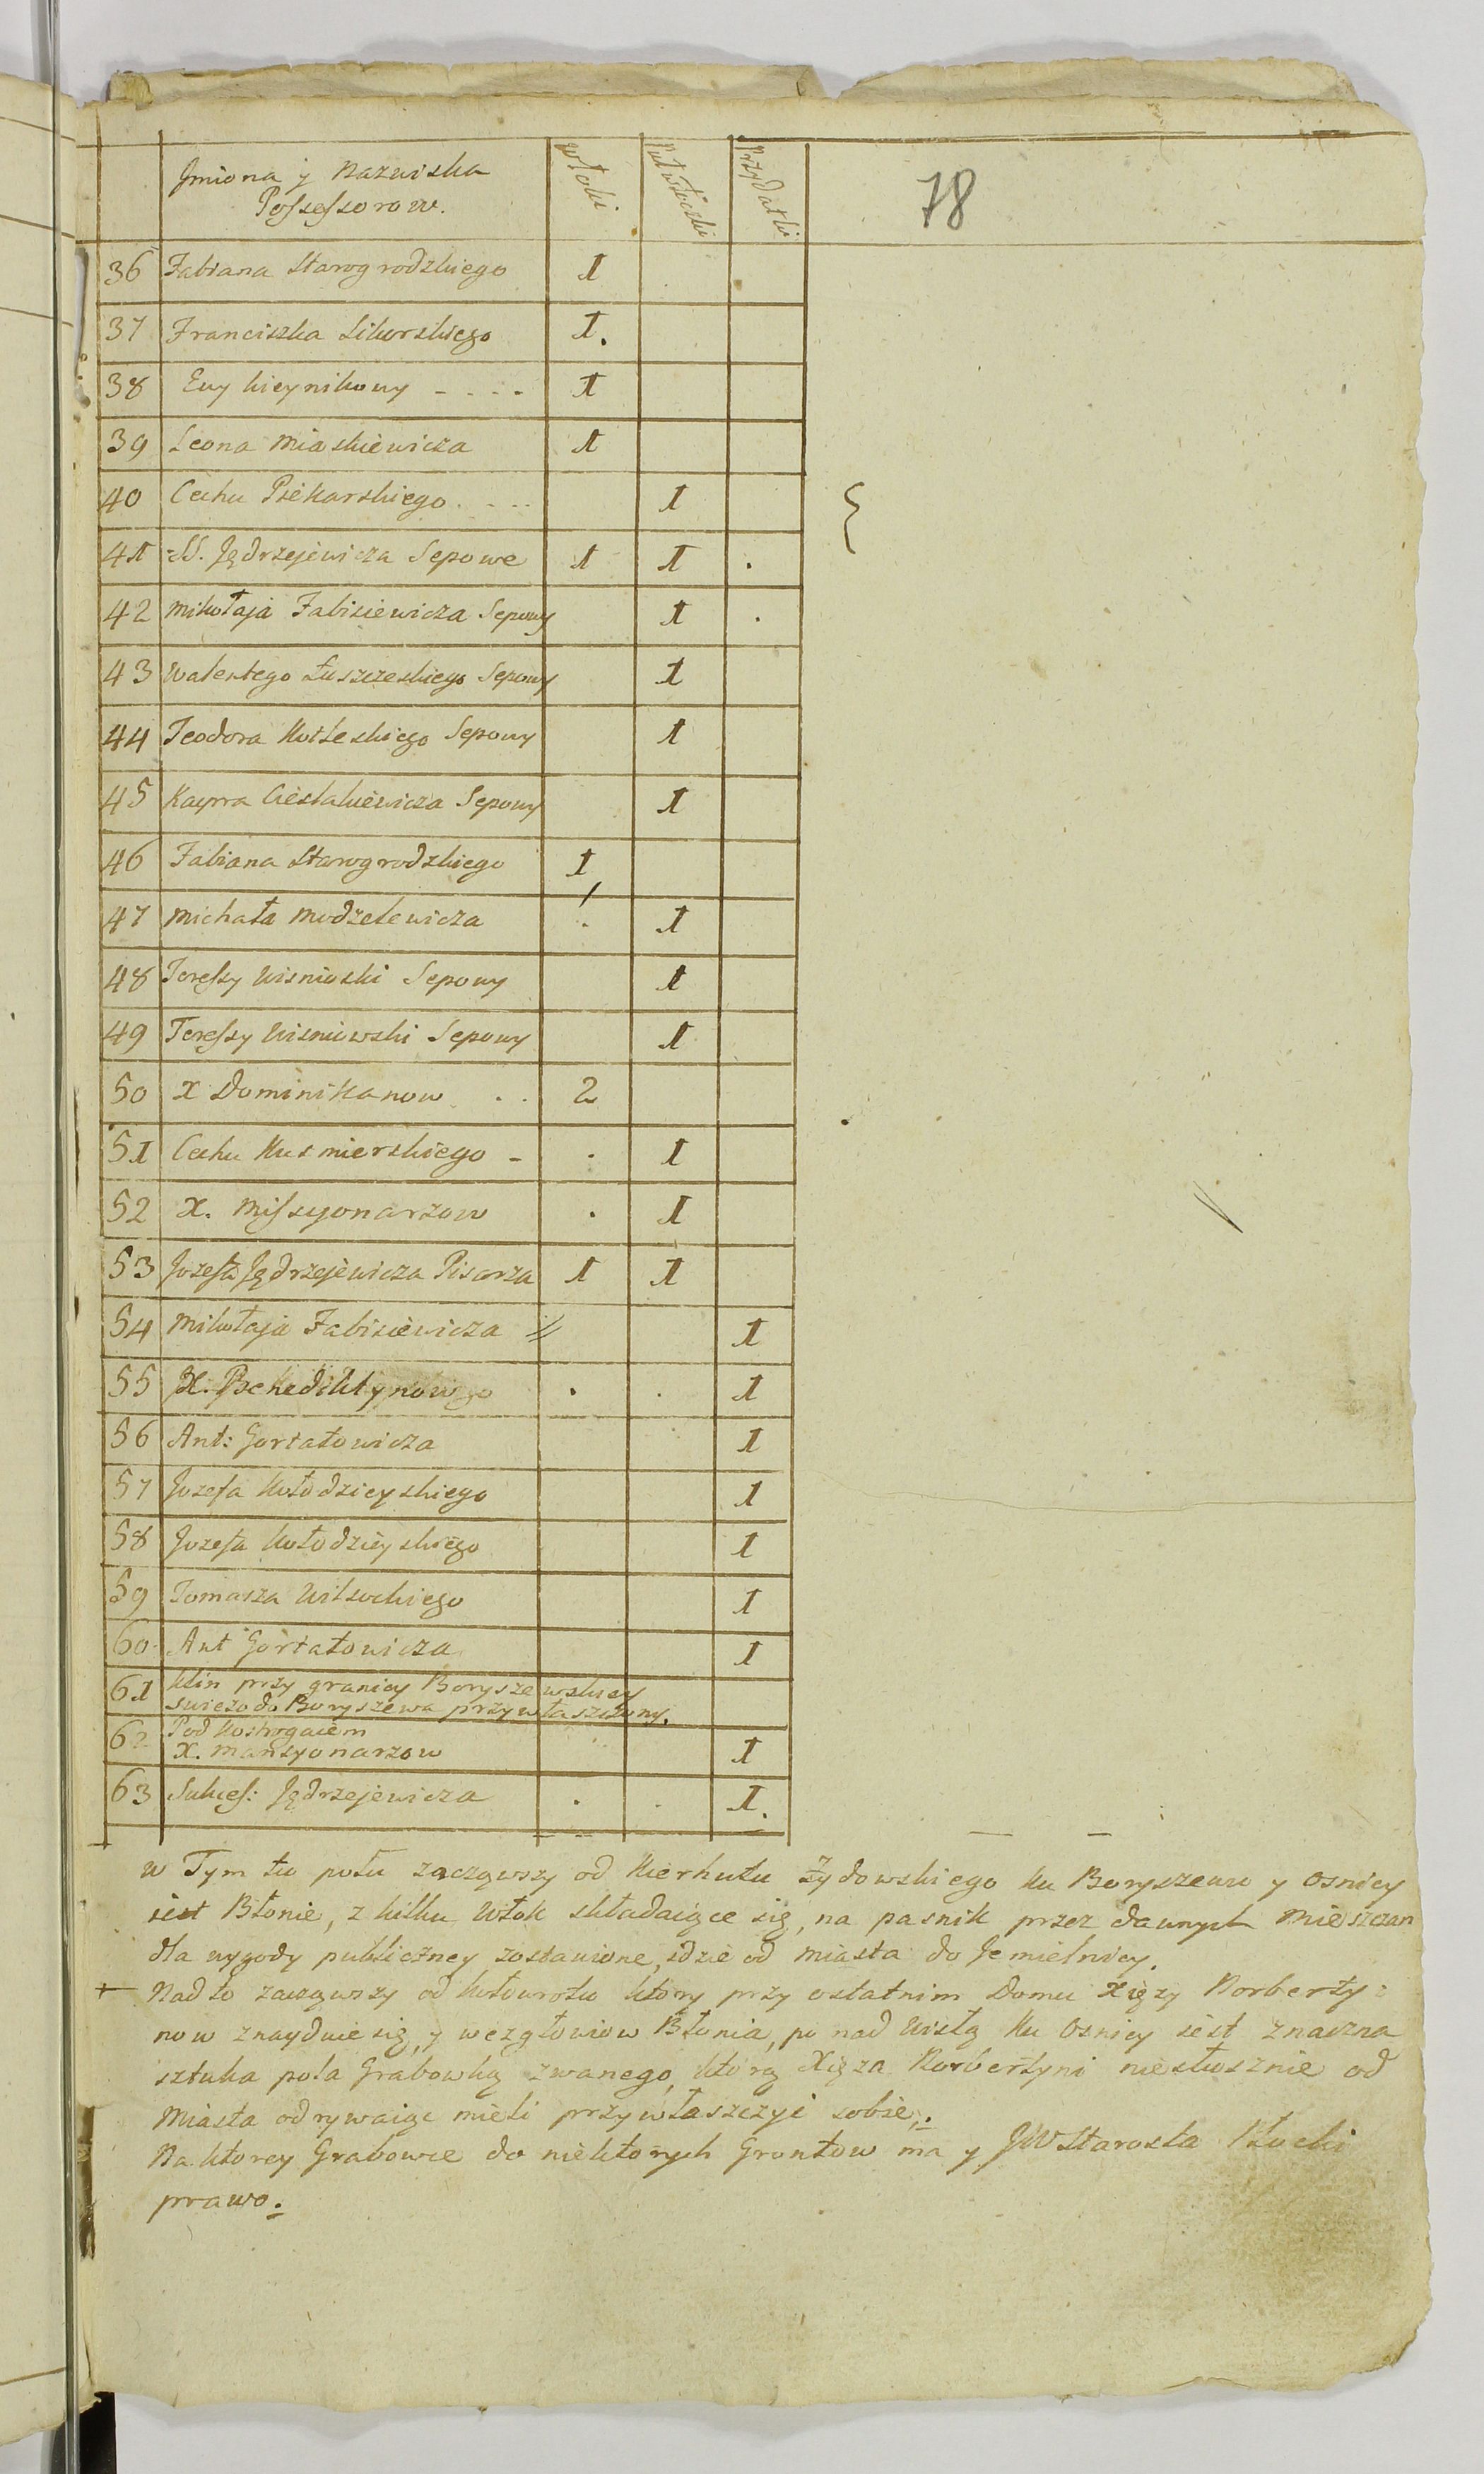 78
Jmiona y Nazwiska
Possessorow.
Włoki
Puł włoczki
Przydatki
36 Fabiana Starogrodzkiego 1
37 Franciszka Sikorskiego 1.
38 Ewy Kieynikowy - . . . 1
39 Leona Miaskiewicza 1
40 Cechu Piekarskiego . . . . 1
41 Jędrzejewicza Sepowe 1 1 .
42 Mikołaja Fabisiewicza Sepowy 1 .
43 Walentego Łuszczeskiego Sepowy 1
44 Teodora Sepowy 1
45 Cieslakiewicza Sepowy 1
46 Fabiana Starogrodzkiego 1
47 Michała Modzelewicza . 1
48 Teressy Wisnioski Sepowy 1
49 Teressy Wisniewski Sepowy 1
50 X Dominikanow . . 2
51 Cechu Kusmierskiego - . 1
52 X. Missyonarzow . 1
53 Jozefa Jędrzejewicza Pisarza 1 1
54 Mikołaja Fabisiewicza // 1
55 X. Benediktynow . . 1
56 Ant: Gorzatowicza 1
57 Jozefa Kołodzieyskiego 1
58 Jozefa Kołodzieyskiego 1
59 Tomasza Wilsockiego 1
60 Ant Gorzatowicza 1
61 Klin przy granicy Boryszewskiey
swiezo do Boryszewa przywłaszczony.
62 Pod Kostrogaiem
X. Mansyonarzow 1
63 Sukces: Jędrzejewicza . . 1.
w Tym tu polu zacząwszy od Kierkutu Żydowskiego ku Boryszewu y Osnicy
iest Błonie, z kilku Włok składaiące się, na pasnik przez dawnych Mieszczan
dla wygody publiczney zostawione, idzie od Miasta do Jemielnicy.
+ Nad to zacząwszy od Kołowrotu ktory przy ostatnim Domu Xięzy Norberty:
now znayduie się, y wezgłowiow Błonia, po nad Wisłą ku Osnicy iest znaczna
sztuka pola Grabowką zwanego, ktorą Xięza Norbertyni niesłusznie od
Miasta odrywaiąc mieli przywłaszczyć sobie.
Na ktorey Grabowce do niektorych Grontow ma y JW Starosta Płocki
prawo.